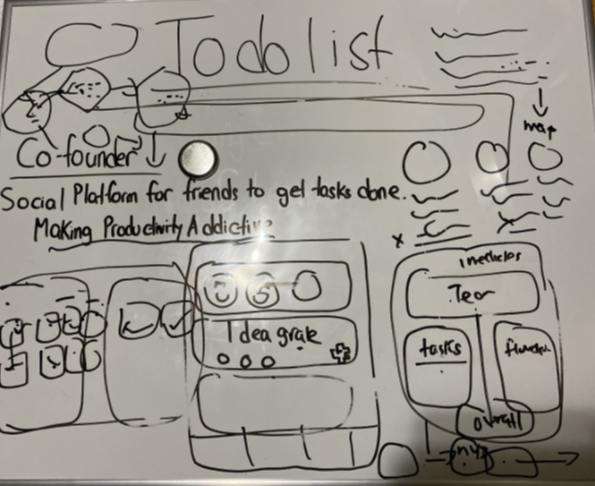 Todo list
map
Co-founder
Social Platform for friends to get tasks done.
Making Productivity Addictive
Idea
tasks
overall